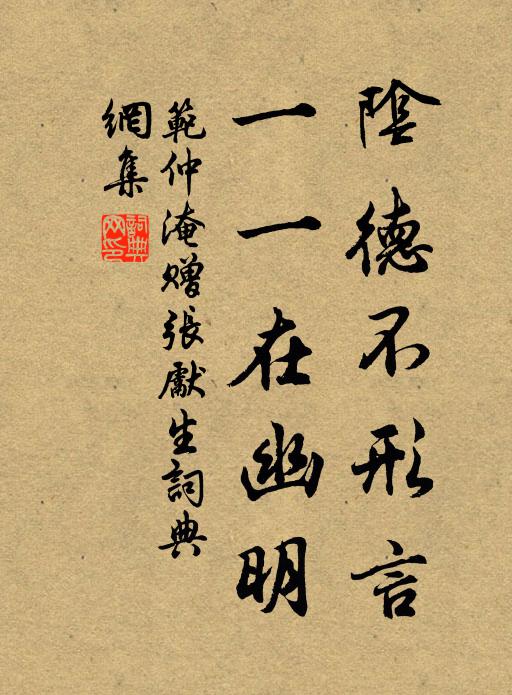 陰德不形言
一一在幽明
範仲淹贈張獻生詞典
網集
詞典
网印